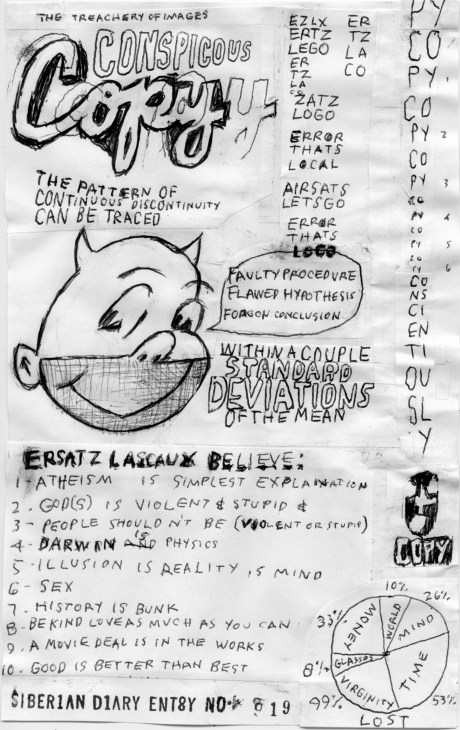 THE TREACHERY OF IMAGES
CONSPICOUS
Copy
THE PATTERN OF
CONTINUOUS DISCONTINUITY
CAN BE TRACED
EZLX
ERTZ
LEGO
ER
TZ
LA
CO
ZATZ
LOGO
ERROR
THATS
LOCAL
AIRSATS
LETSGO
ERROR
THATS
LOGO
ER
TZ
LA
CO
PY
CO
PY 1
CO
PY 2
CO
PY 3
CO
PY 4
CO
PY 5
CO
PY 6
CO
NS
CI
EN
TI
OU
SL
Y
FAULTY PROCEDURE
FLAWED HYPOTHESIS
FORGON CONCLUSION
WITHIN A COUPLE
STANDARD
DEVIATIONS
OF THE MEAN
ERSATZ LASCAUX BELIEVE:
1-ATHEISM IS SIMPLEST EXPLAINATION
2. GOD(S) IS VIOLENT & STUPID &
3- PEOPLE SHOULDN'T BE (VIOLENT OR STUPID)
4- DARWIN IS PHYSICS
5- ILLUSION IS REALITY IS MIND
6- SEX
7. HISTORY IS BUNK
8-BE KIND LOVE AS MUCH AS YOU CAN
9. A MOVIE DEAL IS IN THE WORKS
10. GOOD IS BETTER THAN BEST
COPY
10%
26%
33%
8%
99%
53%
MONEY
WORLD
MIND
GLASSES
VIRGINITY
TIME
LOST
SIBERIAN DIARY ENT8Y NO. 619